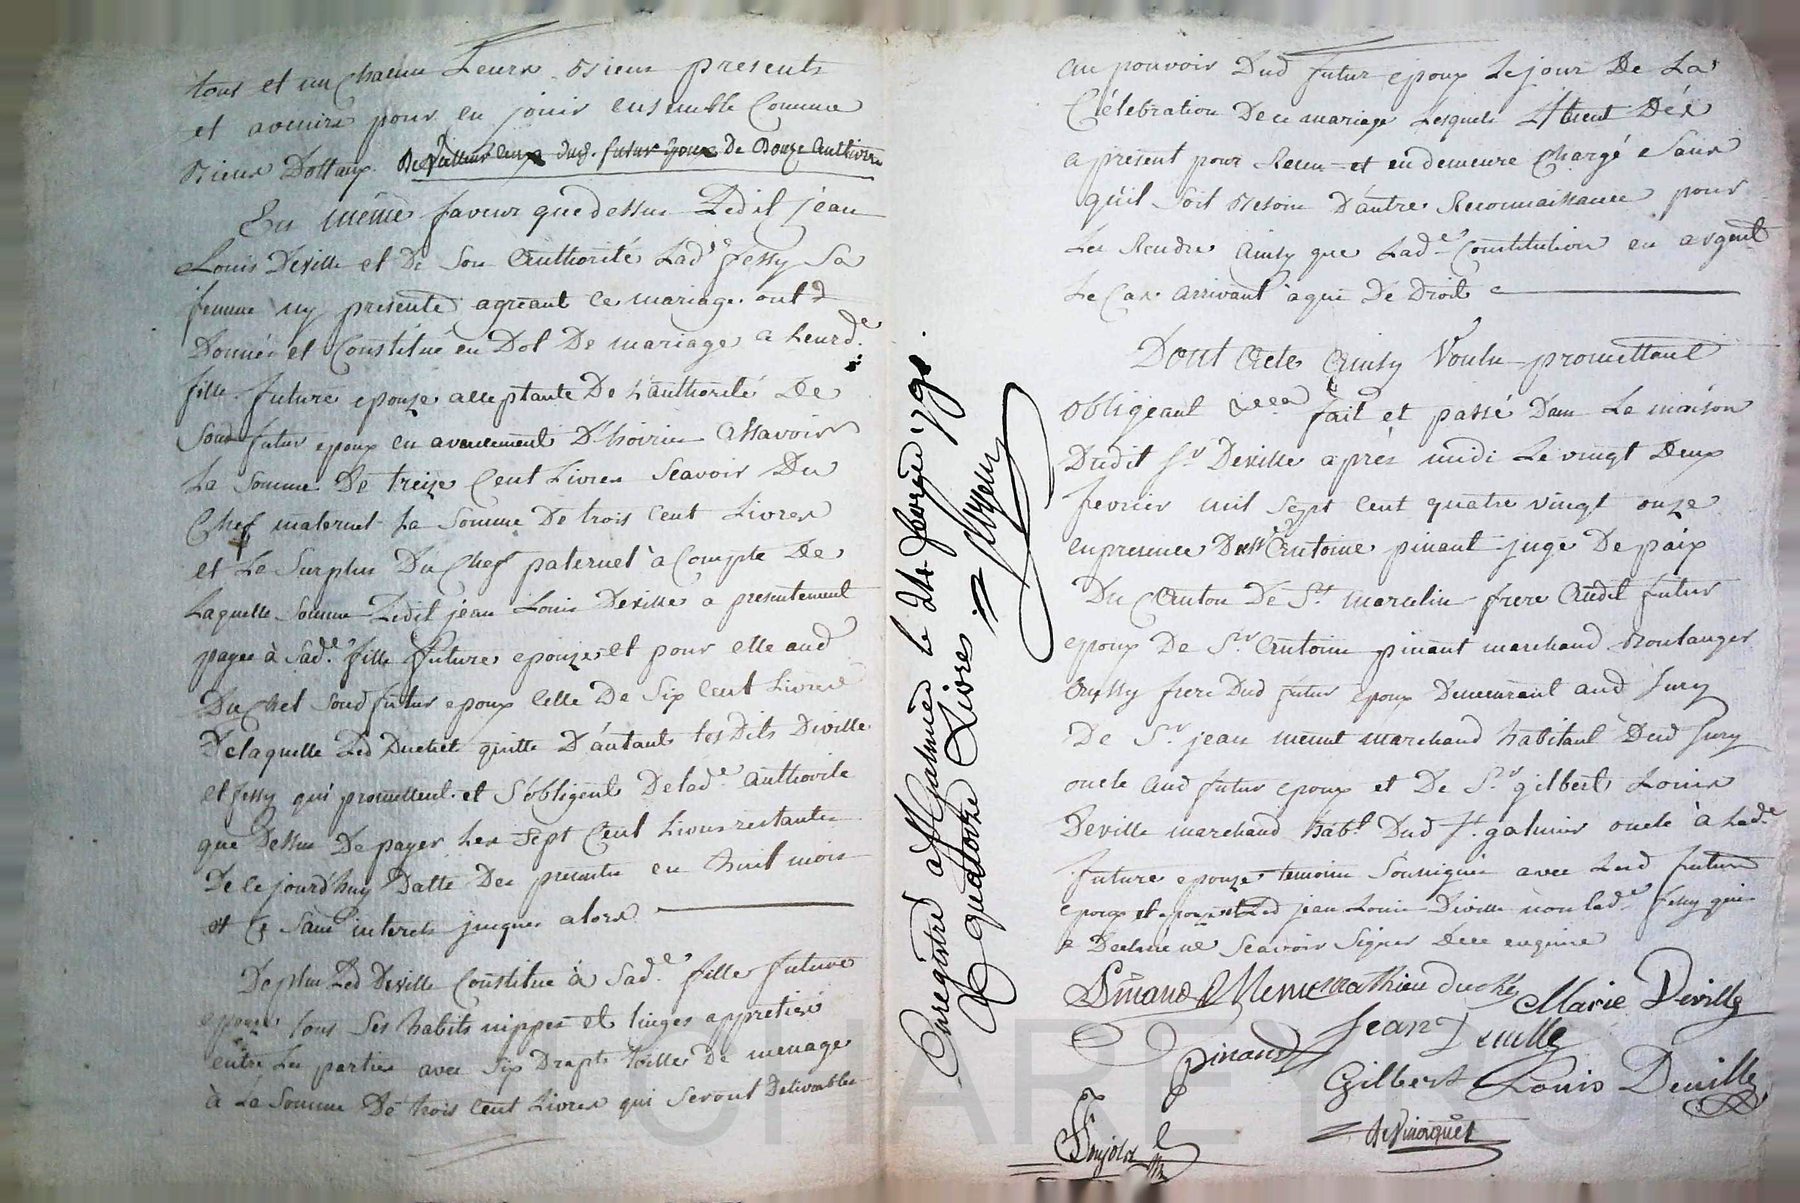 tous et un Chacun Leurs Biens presents
et avenirs pour en jouir ensemble Comme
Biens Dottaux. dud. futur Epoux de Douze
En même faveur que dessus Ledit jean
Louis Deville et De Son Authorité Lad.e fessy Sa
femme icy presente agréant Ce mariage ont
Donné et Constitué en Dot De mariage a Leurd.e
fille future epouze acceptante De L'authorité De
Sond futur epoux en avancement D'hoirie Assavoir
La Somme De treize Cent Livres Scavoir Du
Chef maternel La Somme De trois Cent Livres
et Le Surplus Du Chef paternel à Compte De
Laquelle Somme Ledit jean Louis Deville a presentement
payée à Sad.e fille future epouze et pour elle aud
Duchet Sond futur epoux Celle De Six Cent Livres
De laquelle Led Duchet quitte D'autant Lesdits Deville
et fessy qui promettent et S'obligent De lad.e authorité
que Dessus De payer Les Sept Cent Livres restantes
De Ce jourd'huy Datte Des presentes en huit mois
et Ce Sans interets jusques alors
De plus Led Deville Constitue à Sad.e fille future
epouze tous Ses habits nippes et linges appretiés
entre Les parties avec Six Draps toille De menage
à La Somme De trois Cent Livres qui Seront Delivrables
Enregistré à St Galmier le fevrier 1791.
R quatorze Livres
au pouvoir Dud futur epoux Le jour De La
Célébration De ce mariage Lesquels Il tient Dès
a present pour Reçus et en demeure Chargé Sans
qu'il Soit Besoin D'autre Reconnaissance pour
Les Rendre ainsy que Lad.e Constitution en argent
Le Cas arrivant à qui De Droit
Dont Acte Ainsy Voulu promettant
obligeant fait et passé Dans La maison
Dudit Sr Deville après midi Le vingt Deux
fevrier mil Sept Cent quatre vingt onze
en presence De Sr Antoine pinant juge De paix
Du Canton De St marcelin frere Audit futur
epoux De Sr Antoine pinant marchand Boulanger
frere Dud futur epoux Demeurant aud Sury
De Sr jean menut marchand habitant Dud Sury
oncle Aud futur epoux et De Sr gilbert Louis
Deville marchand hab.t Dud St galmier oncle à Lad.e
future epouze temoins Soussignés avec Led futur
epoux et epouze et Led jean Louis Deville non lad.e fessy qui
a Declaré ne Scavoir Signer De ce enquise
Pinand Menu mathieu duche Marie Deville
Pinand Jean Deville
Gilbert Louis Deville